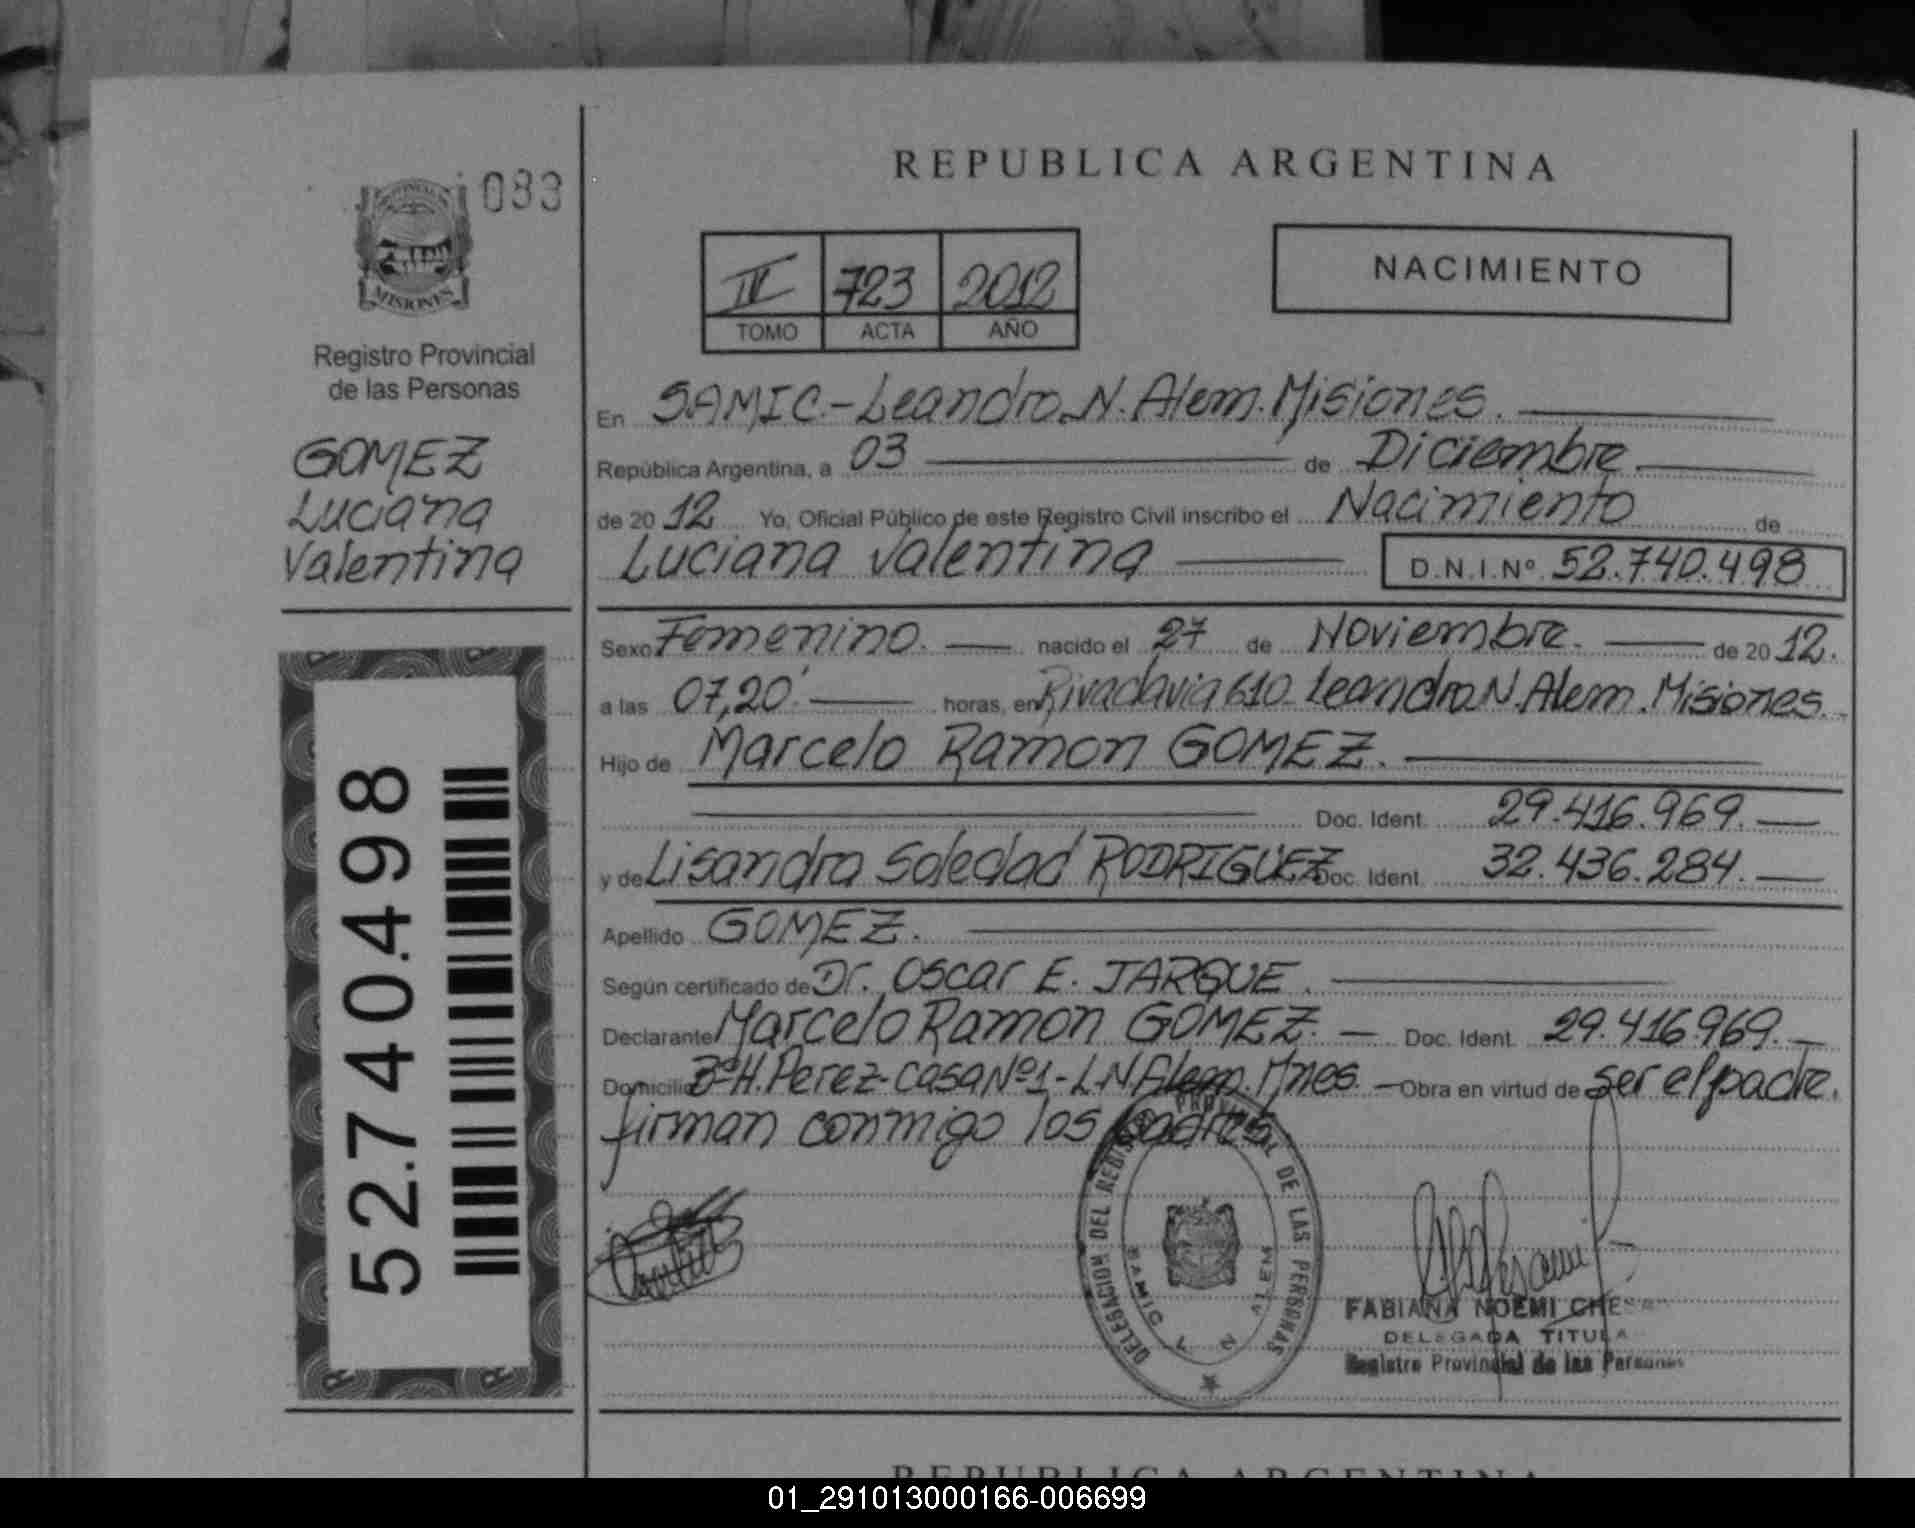 REPUBLICA ARGENTINA
083
MISIONES
Registro Provincial
de las Personas
GOMEZ
Luciana
Valentina
52.740.498
723 2012
TOMO ACTA AÑO
NACIMIENTO
En SAMIC.-Leandro N. Alem. Misiones.
República Argentina, a 03 de Diciembre.
de 2012 Yo, Oficial Público de este Registro Civil inscribo el Nacimiento de
Luciana Valentina D.N.I.Nº 52.740.498
Sexo Femenino. nacido el 27 de Noviembre. de 2012.
a las 07,20' horas, en Rivadavia 610 Leandro N. Alem. Misiones.
Hijo de Marcelo Ramon GOMEZ.
Doc. Ident. 29.416.969.
y de Lisandra Soledad RODRIGUEZ Doc. Ident. 32.436.284.
Apellido GOMEZ.
Según certificado de Dr. Oscar E. JARQUE.
Declarante Marcelo Ramon GOMEZ. Doc. Ident. 29.416.969.
Domicilio Bº H. Perez-casa Nº1-L.N. Alem. Mnes. Obra en virtud de ser el padre.
firman conmigo los padres
DELEGACION DEL REGISTRO PROVINCIAL DE LAS PERSONAS
SAMIC L N ALEM
FABIANA NOEMI
DELEGADA TITULA
Registro Provincial de las Personas
REPUBLICA ARGENTINA
01_291013000166-006699